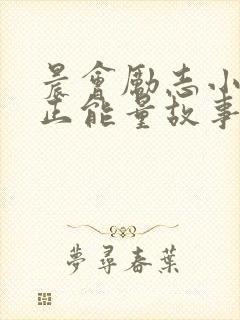 晨會勵志小
正能量故事
夢尋春葉